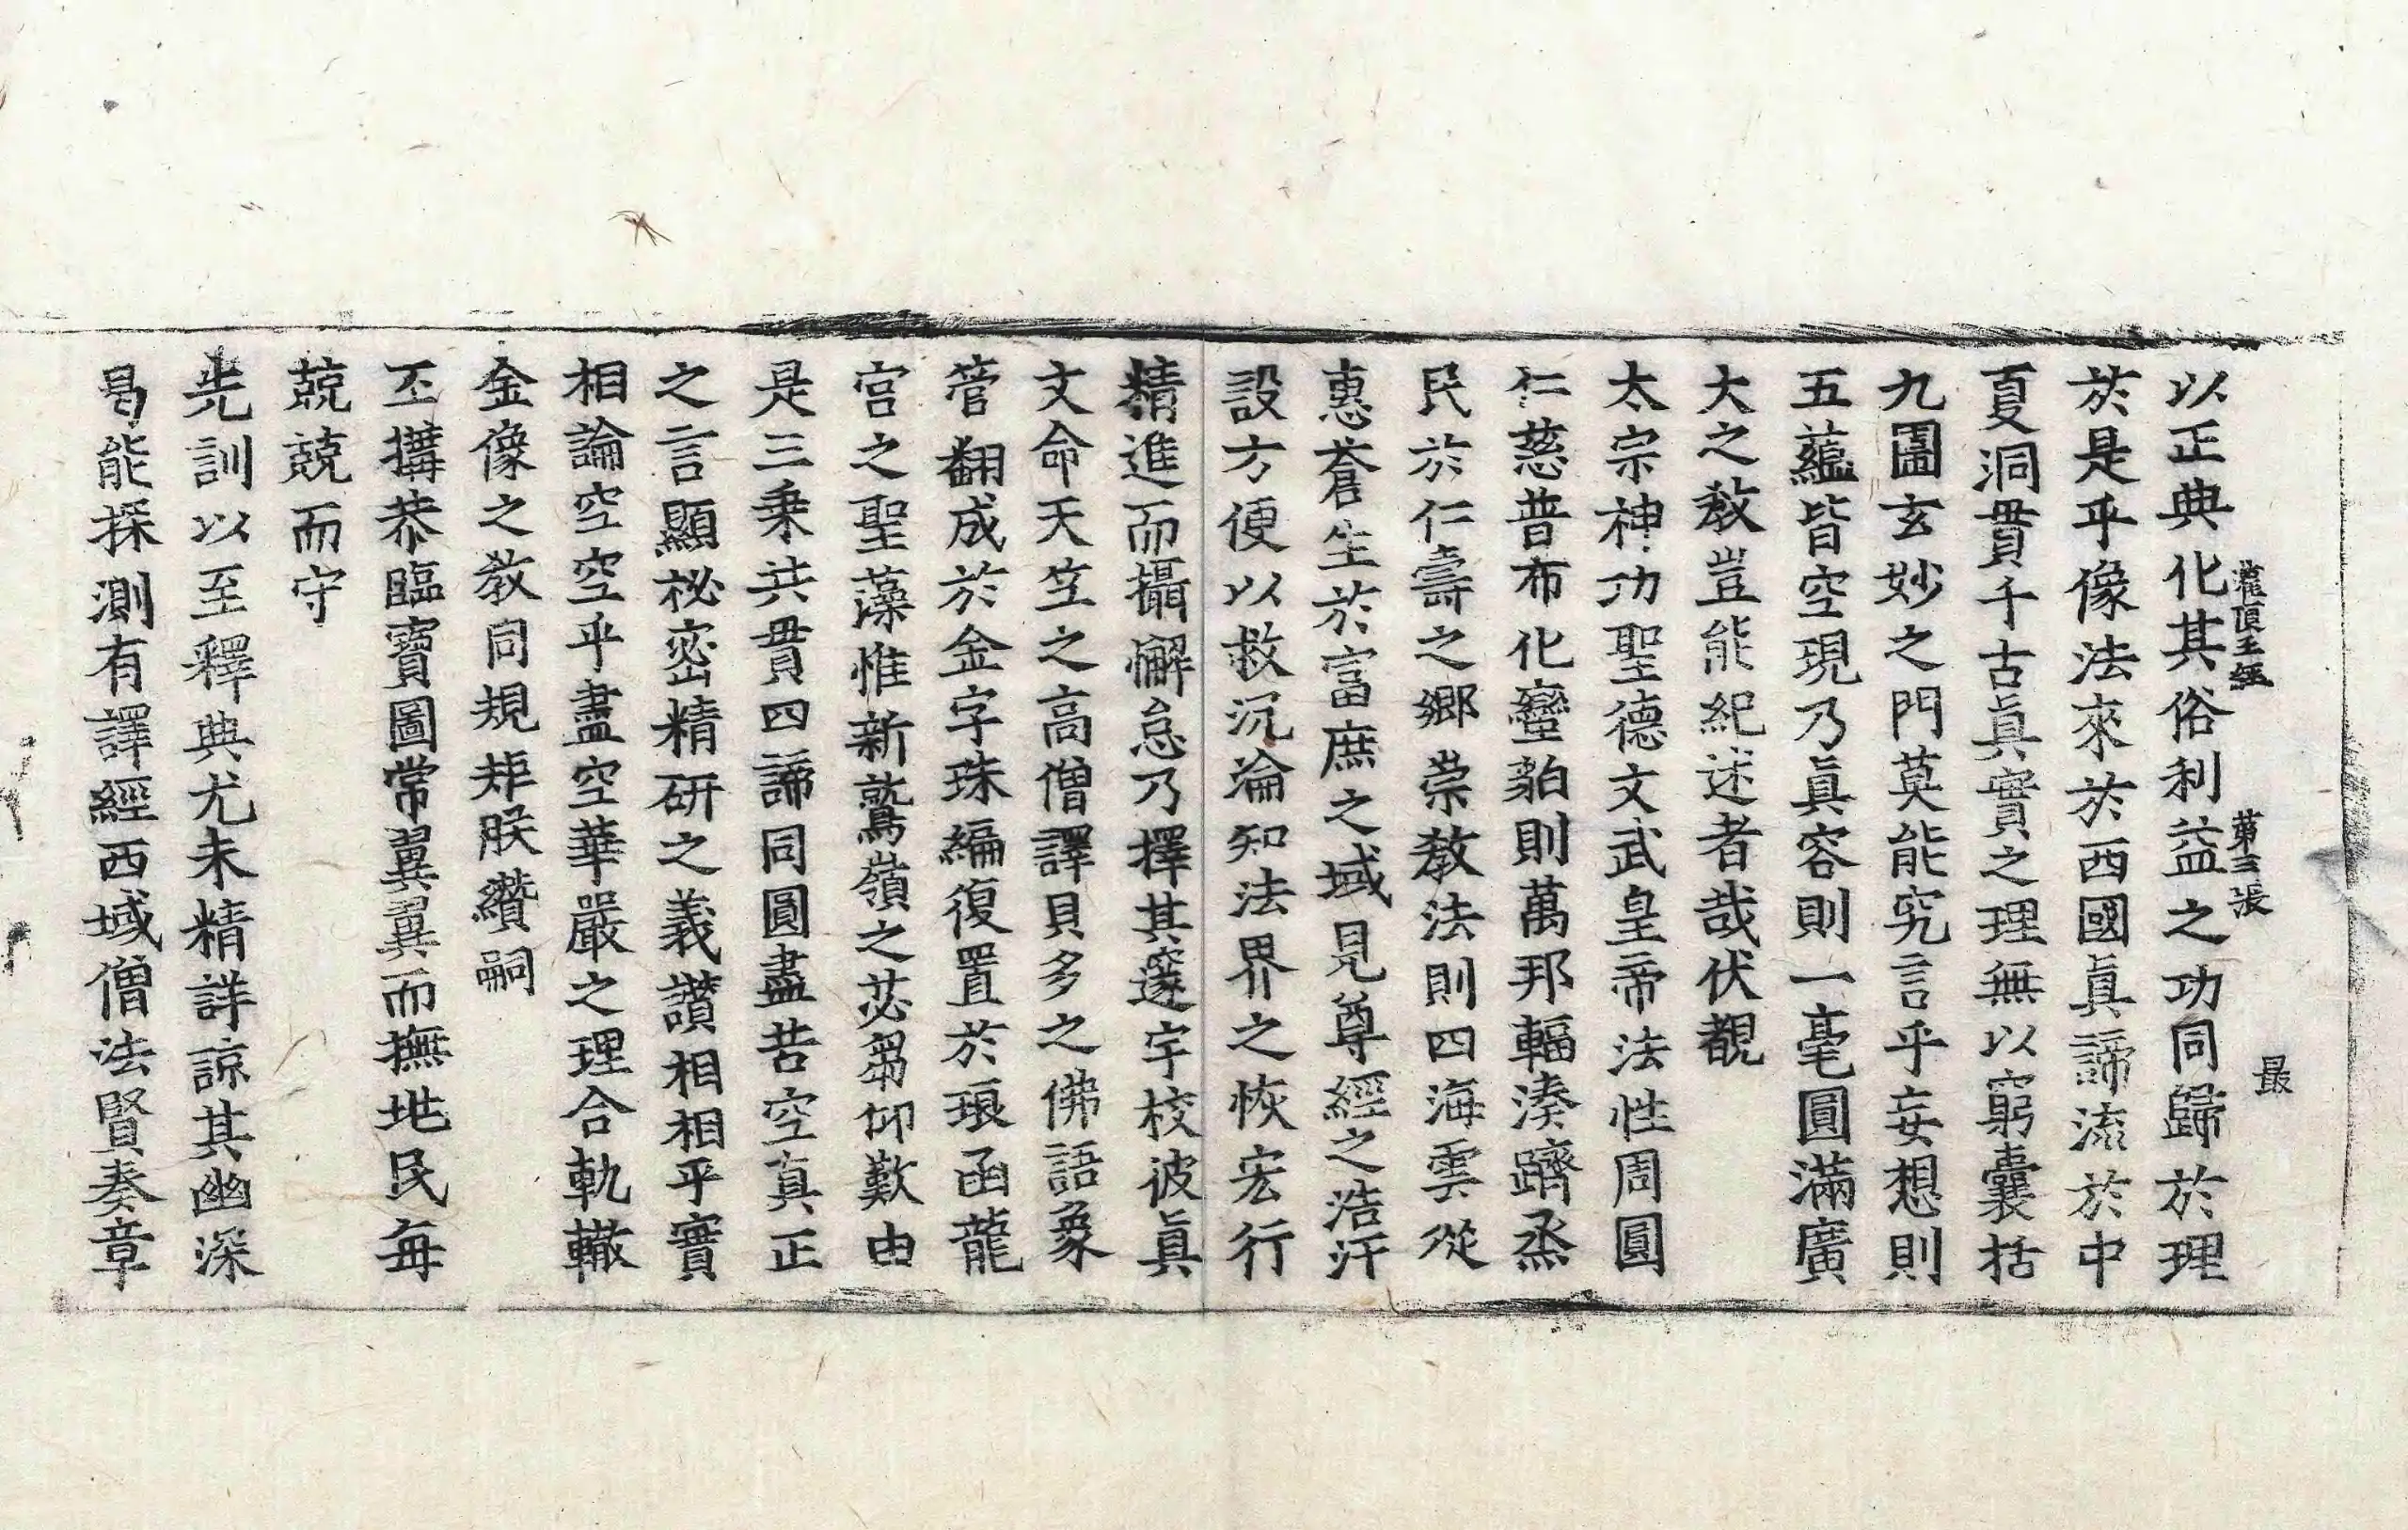 灌頂王經　第三張　最
以正典化其俗利益之功同歸於理
於是乎像法來於西國真諦流於中
夏洞貫千古真實之理無以窮囊括
九圍玄妙之門莫能究言乎妄想則
五蘊皆空現乃真容則一毫圓滿廣
大之教豈能紀述者哉伏覩
太宗神功聖德文武皇帝法性周圓
仁慈普布化蠻貊則萬邦輻湊躋烝
民於仁壽之鄉崇教法則四海雲從
惠蒼生於富庶之域見尊經之浩汗
設方便以救沉淪知法界之恢宏行
精進而攝懈怠乃擇其邃宇校彼真
文命天竺之高僧譯貝多之佛語象
管翻成於金字珠編復置於琅函龍
宮之聖藻惟新鷲嶺之苾芻仰歎由
是三乘共貫四諦同圓盡苦空真正
之言顯祕密精研之義讚相相乎實
相論空空乎盡空華嚴之理合軌轍
金像之教同規矩朕纘嗣
丕搆恭臨寶圖常翼翼而撫地民每
兢兢而守
先訓以至釋典尤未精詳諒其幽深
曷能探測有譯經西域僧法賢奏章